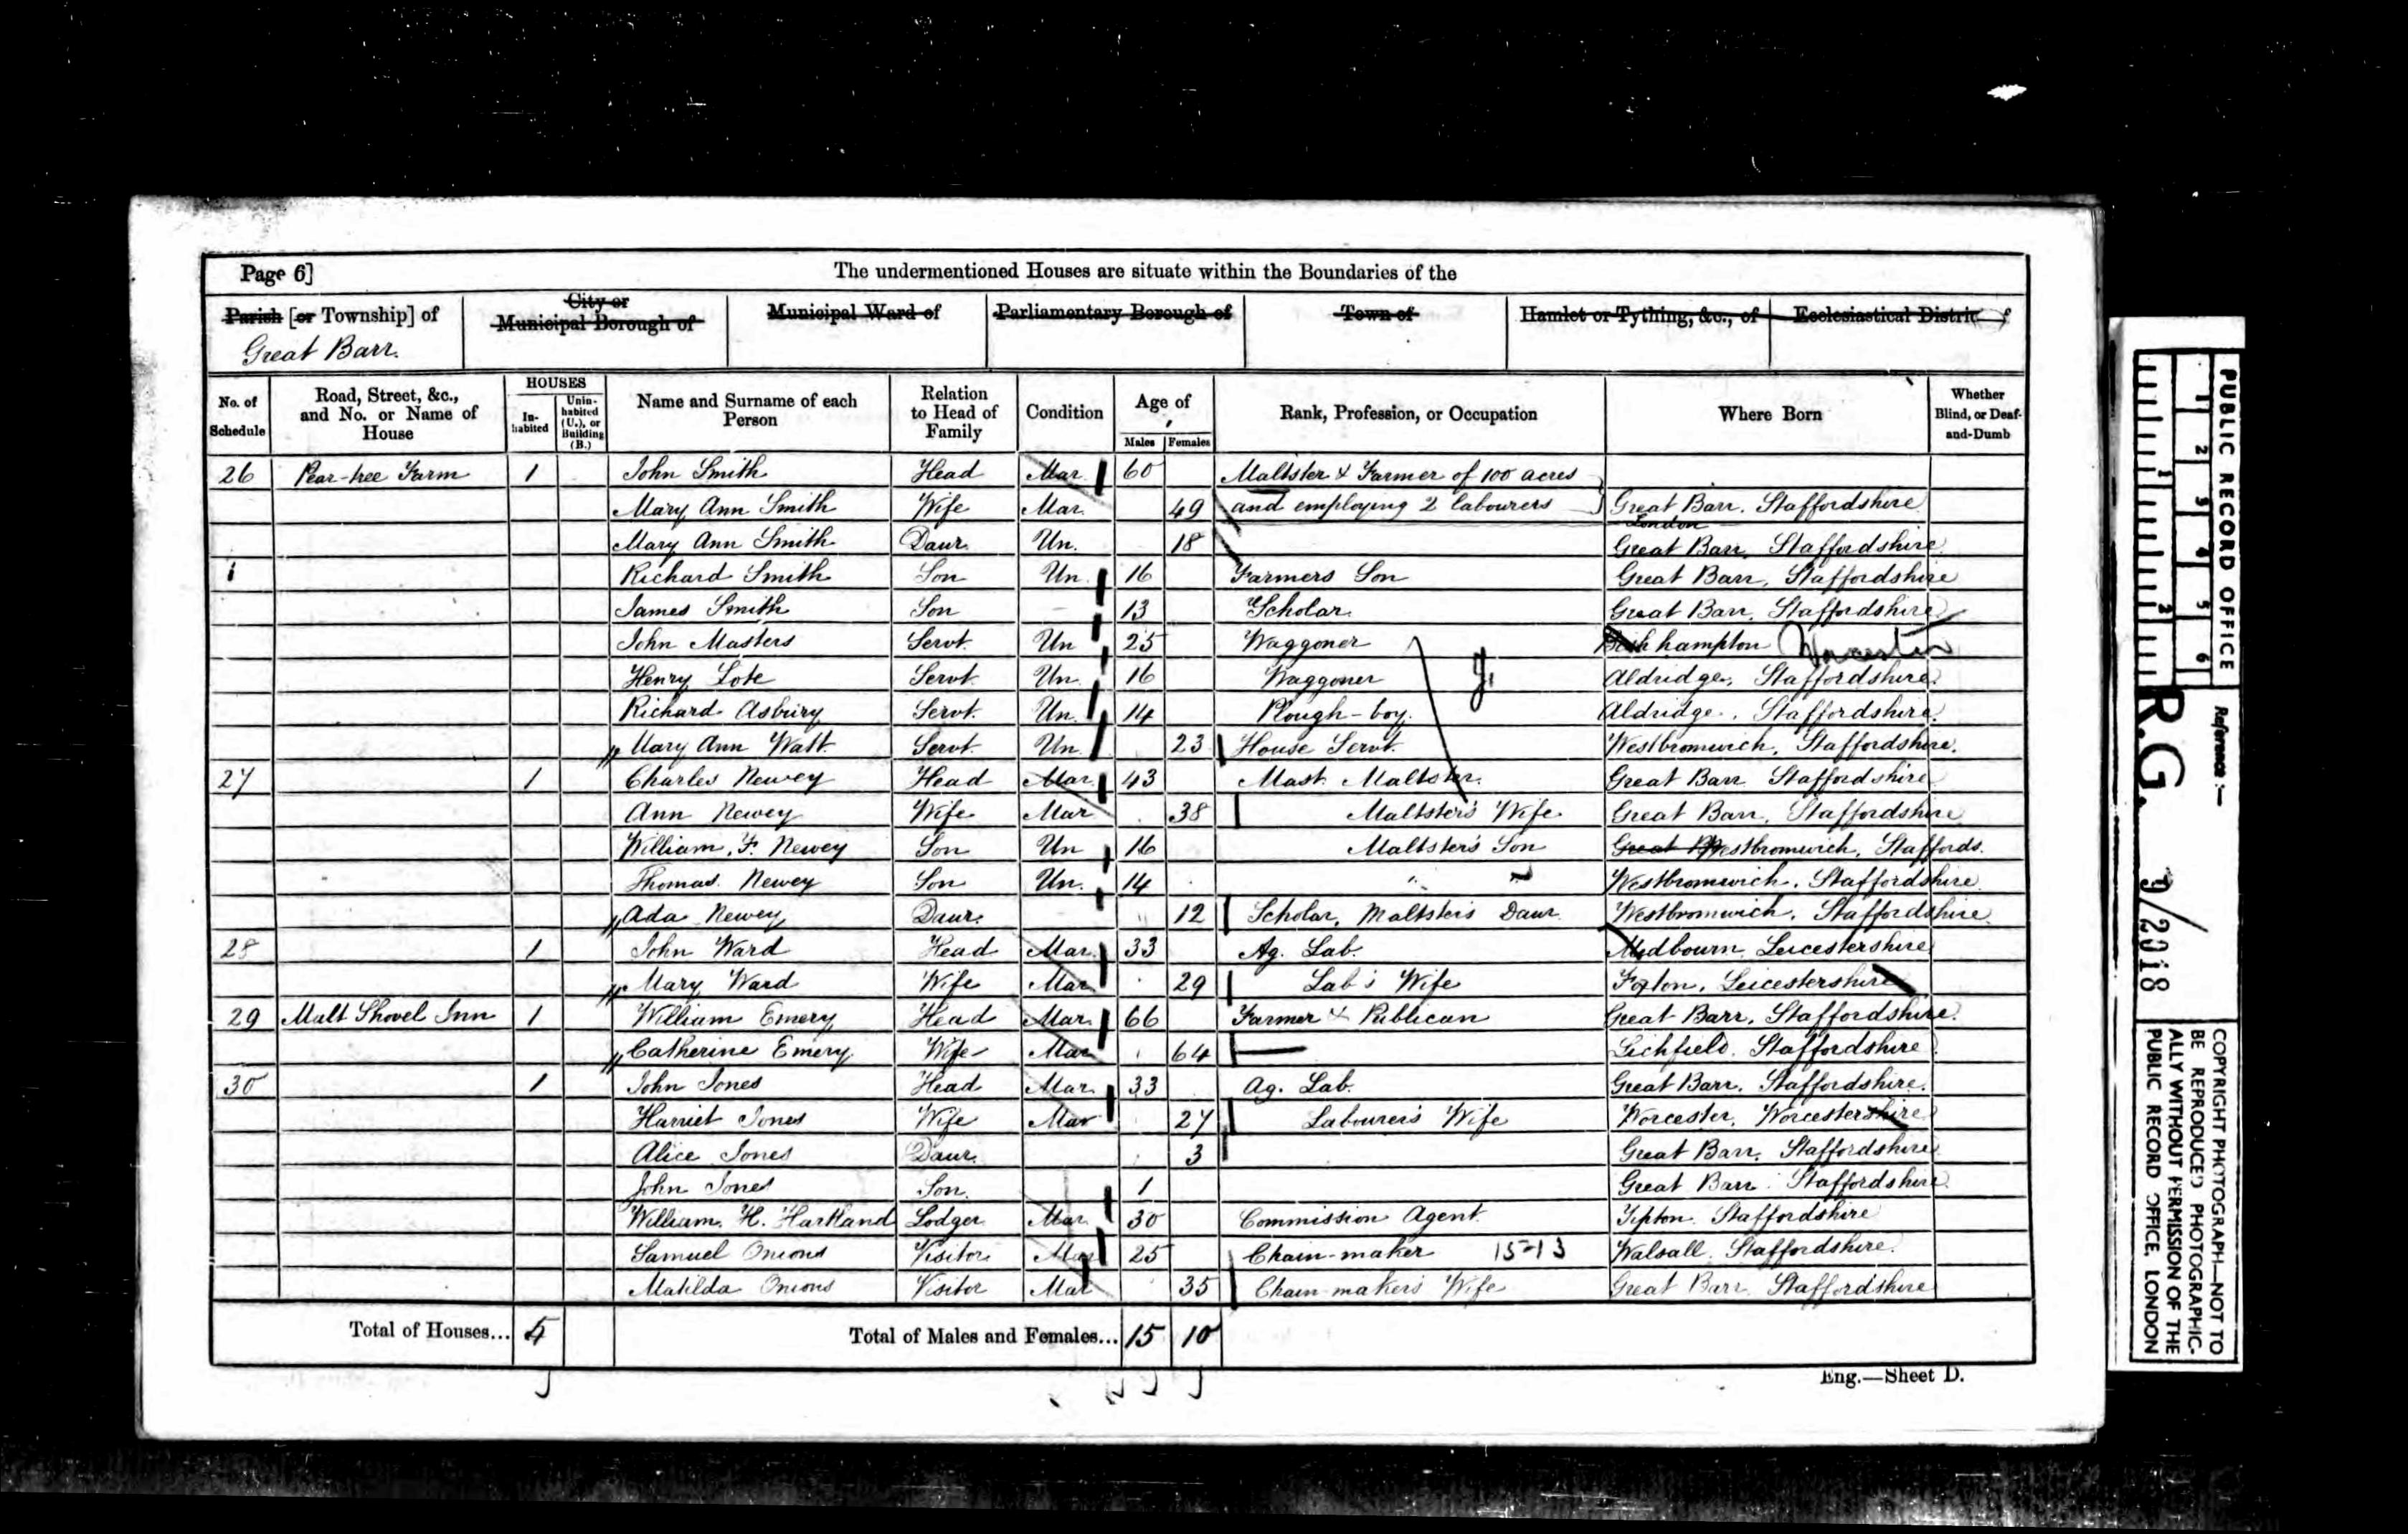 Page 6]
The undermentioned Houses are situate within the Boundaries of the
Parish [or Township] of
Great Barr.
City or
Municipal Borough of
Municipal Ward of
Parliamentary Borough of
Town of
Hamlet or Tything, &c., of
Ecclesiastical District
No. of Schedule
Road, Street, &c., and No. or Name of House
HOUSES
In-habited
Unin-habited (U.), or Building (B.)
Name and Surname of each Person
Relation to Head of Family
Condition
Age of
Males
Females
Rank, Profession, or Occupation
Where Born
Whether Blind, or Deaf-and-Dumb
26 Pear-tree Farm 1 John Smith Head Mar. 60 Maltster & Farmer of 100 acres
Mary Ann Smith Wife Mar. 49 and employing 2 labourers Great Barr. Staffordshire
London
Mary Ann Smith Daur. Un. 18 Great Barr, Staffordshire
Richard Smith Son Un. 16 Farmers Son Great Barr, Staffordshire
James Smith Son 13 Scholar Great Barr, Staffordshire
John Masters Servt. Un 25 Waggoner hampton Worcester
Henry Lote Servt. Un. 16 Waggoner Aldridge, Staffordshire.
Richard Asbury Servt. Un. 14 Plough-boy. Aldridge, Staffordshire.
Mary Ann Watt Servt. Un 23 House Servt. Westbromwich, Staffordshire.
27 1 Charles Newey Head Mar. 43 Mast. Maltster. Great Barr Staffordshire
Ann Newey Wife Mar 38 Maltster's Wife Great Barr, Staffordshire
William. F. Newey Son Un 16 Maltster's Son Great Westbromwich, Staffords.
Thomas Newey Son Un. 14 " " Westbromwich, Staffordshire
Ada Newey Daur. 12 Scholar, Maltster's Daur Westbromwich, Staffordshire
28 1 John Ward Head Mar. 33 Ag. Lab. Medbourn Leicestershire
Mary Ward Wife Mar 29 Lab's Wife Foxton, Leicestershire
29 Malt Shovel Inn 1 William Emery Head Mar. 66 Farmer & Publican Great Barr, Staffordshire.
Catherine Emery Wife Mar 64 Lichfield. Staffordshire
30 1 John Jones Head Mar. 33 Ag. Lab. Great Barr. Staffordshire.
Harriet Jones Wife Mar 27 Labourer's Wife Worcester, Worcestershire
Alice Jones Daur. 3 Great Barr. Staffordshire
John Jones Son. 1 Great Barr. Staffordshire
William. H. Hartland Lodger Mar. 30 Commission Agent Tipton. Staffordshire
Samuel Onions Visitor Mar 25 Chain-maker 15-13 Walsall. Staffordshire.
Matilda Onions Visitor Mar 35 Chain maker's Wife Great Barr. Staffordshire
Total of Houses... 5
Total of Males and Females... 15 10
Eng.—Sheet D.
PUBLIC RECORD OFFICE
1 2 3 4 5 6
1 2
Reference:—
R.G. 9/2018
COPYRIGHT PHOTOGRAPH—NOT TO
BE REPRODUCED PHOTOGRAPHIC-
ALLY WITHOUT PERMISSION OF THE
PUBLIC RECORD OFFICE, LONDON